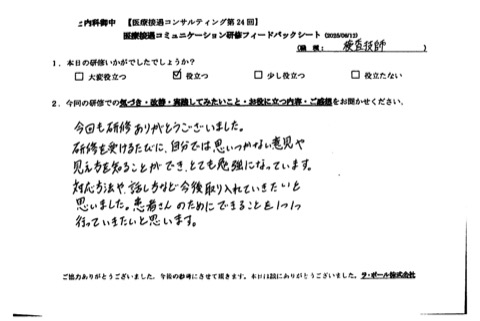 内科御中 【医療接遇コンサルティング第24回】
医療接遇コミュニケーション研修フィードバックシート (2025/06/12)
(職種: 検査技師 )
1.本日の研修いかがでしたでしょうか?
□ 大変役立つ ☑ 役立つ □ 少し役立つ □ 役立たない
2.今回の研修での気づき・改善・実践してみたいこと・お役に立つ内容・ご感想をお聞かせください。
今回も研修ありがとうございました。
研修を受けるたびに、自分では思いつかない意見や
見え方を知ることができ、とても勉強になっています。
対応方法や、話し方など今後取り入れていきたいと
思いました。患者さんのためにできることを1つ1つ
行っていきたいと思います。
ご協力ありがとうございました。今後の参考にさせて頂きます。本日は誠にありがとうございました。ラ・ポール株式会社